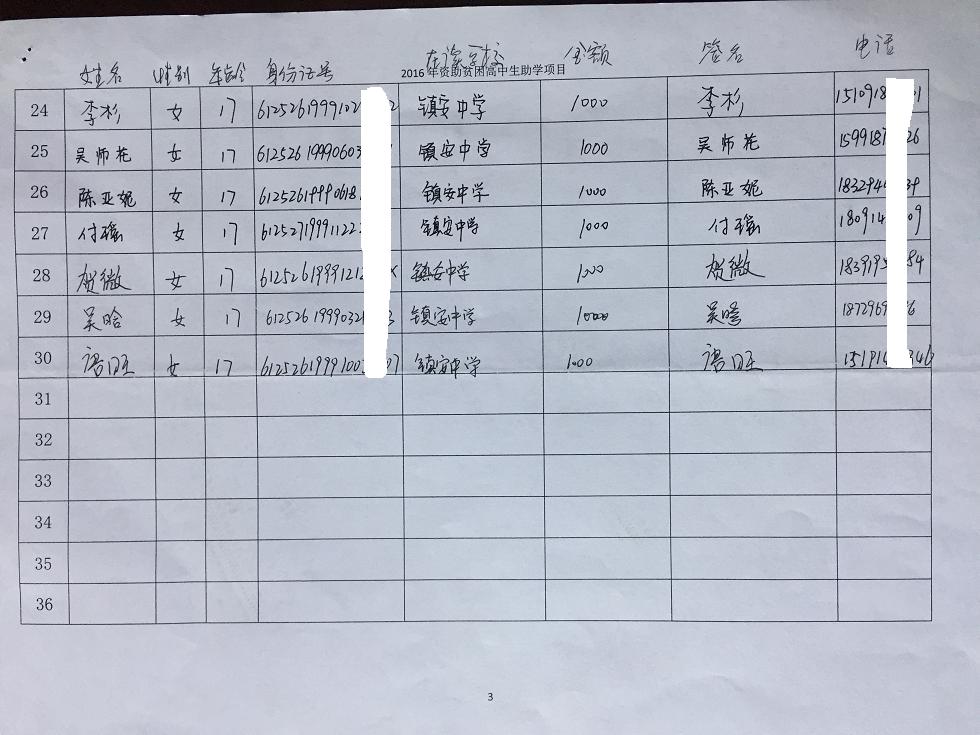 姓名 性别 年龄 身份证号 在读学校 金额 签名 电话
2016 年资助贫困高中生助学项目
24 李杉 女 17 612526199910 2 镇安中学 1000 李杉 1510918 01
25 吴师花 女 17 61252619990603 镇安中学 1000 吴师花 1599187 26
26 陈亚妮 女 17 61252619990618 镇安中学 1000 陈亚妮 183294 39
27 付瑶 女 17 61252719991122 镇安中学 1000 付瑶 180914 09
28 贺微 女 17 6125261999121 X 镇安中学 1000 贺微 1839195 84
29 吴晗 女 17 6125261999032 3 镇安中学 1000 吴 1872969 6
30 女 17 61252619991003 07 镇安中学 1000 151914 346
31
32
33
34
35
36
3